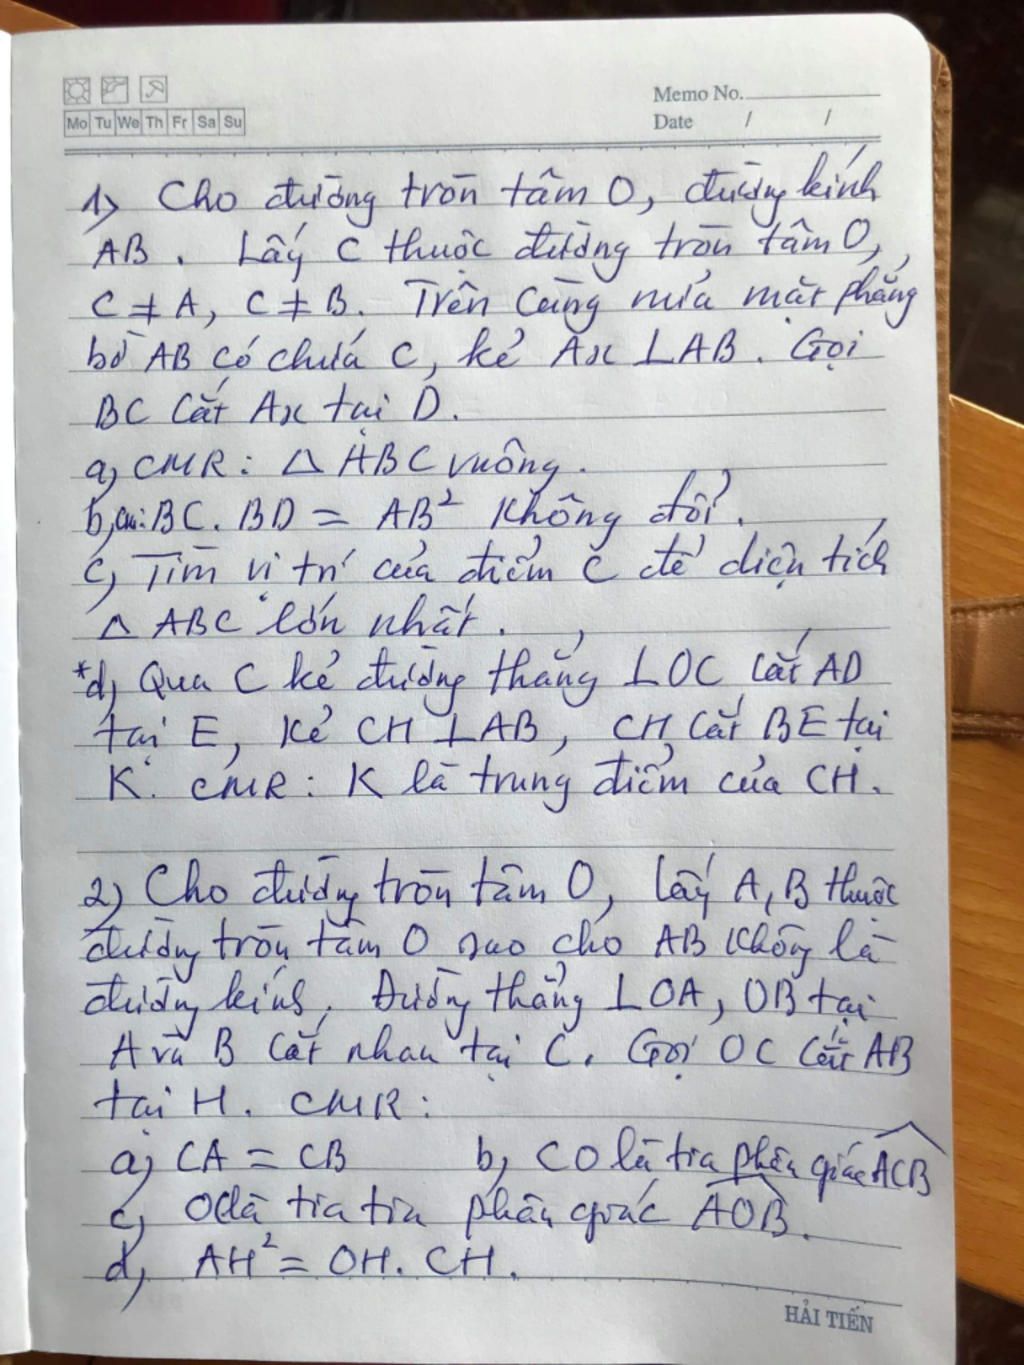 Memo No.
Mo Tu We Th Fr Sa Su
Date / /
1) Cho đường tròn tâm O, đường kính
AB. Lấy C thuộc đường tròn tâm O,
C ≠ A, C ≠ B. Trên cùng nửa mặt phẳng
bờ AB có chứa C, kẻ Ax ⊥ AB. Gọi
BC cắt Ax tại D.
a) CMR: △ ABC vuông.
b) cm: BC. BD = AB² không đổi.
c) Tìm vị trí của điểm C để diện tích
△ ABC lớn nhất.
*d) Qua C kẻ đường thẳng ⊥ OC cắt AD
tại E, kẻ CH ⊥ AB, CH cắt BE tại
K. CMR: K là trung điểm của CH.
2) Cho đường tròn tâm O, lấy A, B thuộc
đường tròn tâm O sao cho AB không là
đường kính. Đường thẳng ⊥ OA, OB tại
A và B cắt nhau tại C. Gọi OC cắt AB
tại H. CMR:
a) CA = CB b) CO là tia phân giác ACB
c) OC là tia tia phân giác AOB.
d) AH² = OH. CH.
HẢI TIẾN